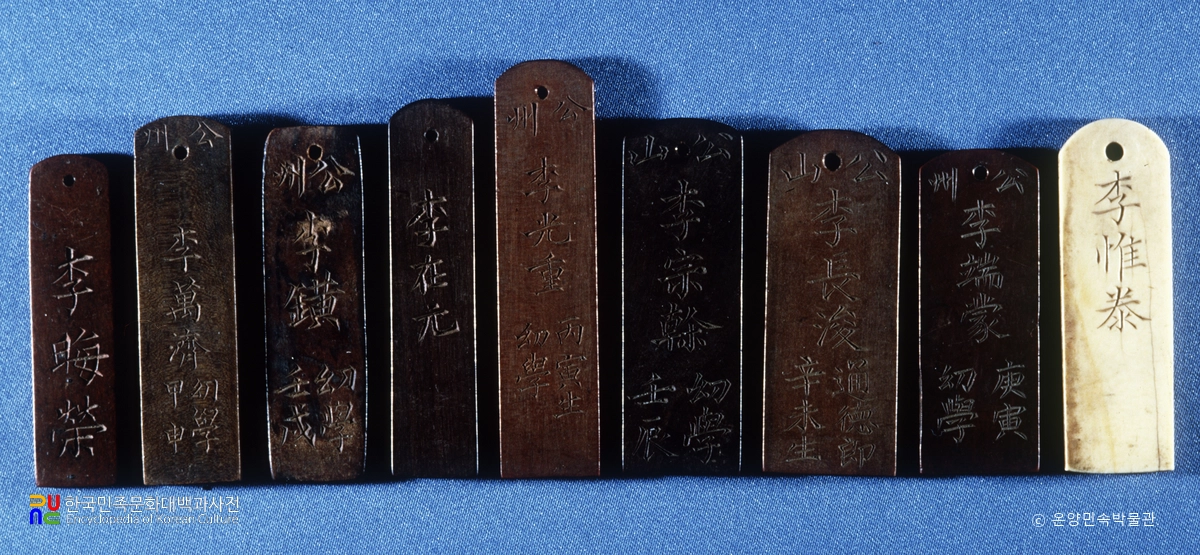 李晦榮
公州
李萬濟
幼學
甲申
公州
李鐄
幼學
壬戌
李在元
公州
李光重
丙寅生
幼學
公山
李宗榦
幼學
壬辰
公山
李長浚
通德郎
辛未生
公州
李端蒙
庚寅
幼學
李惟泰
한국민족문화대백과사전
Encyclopedia of Korean Culture
ⓒ 온양민속박물관